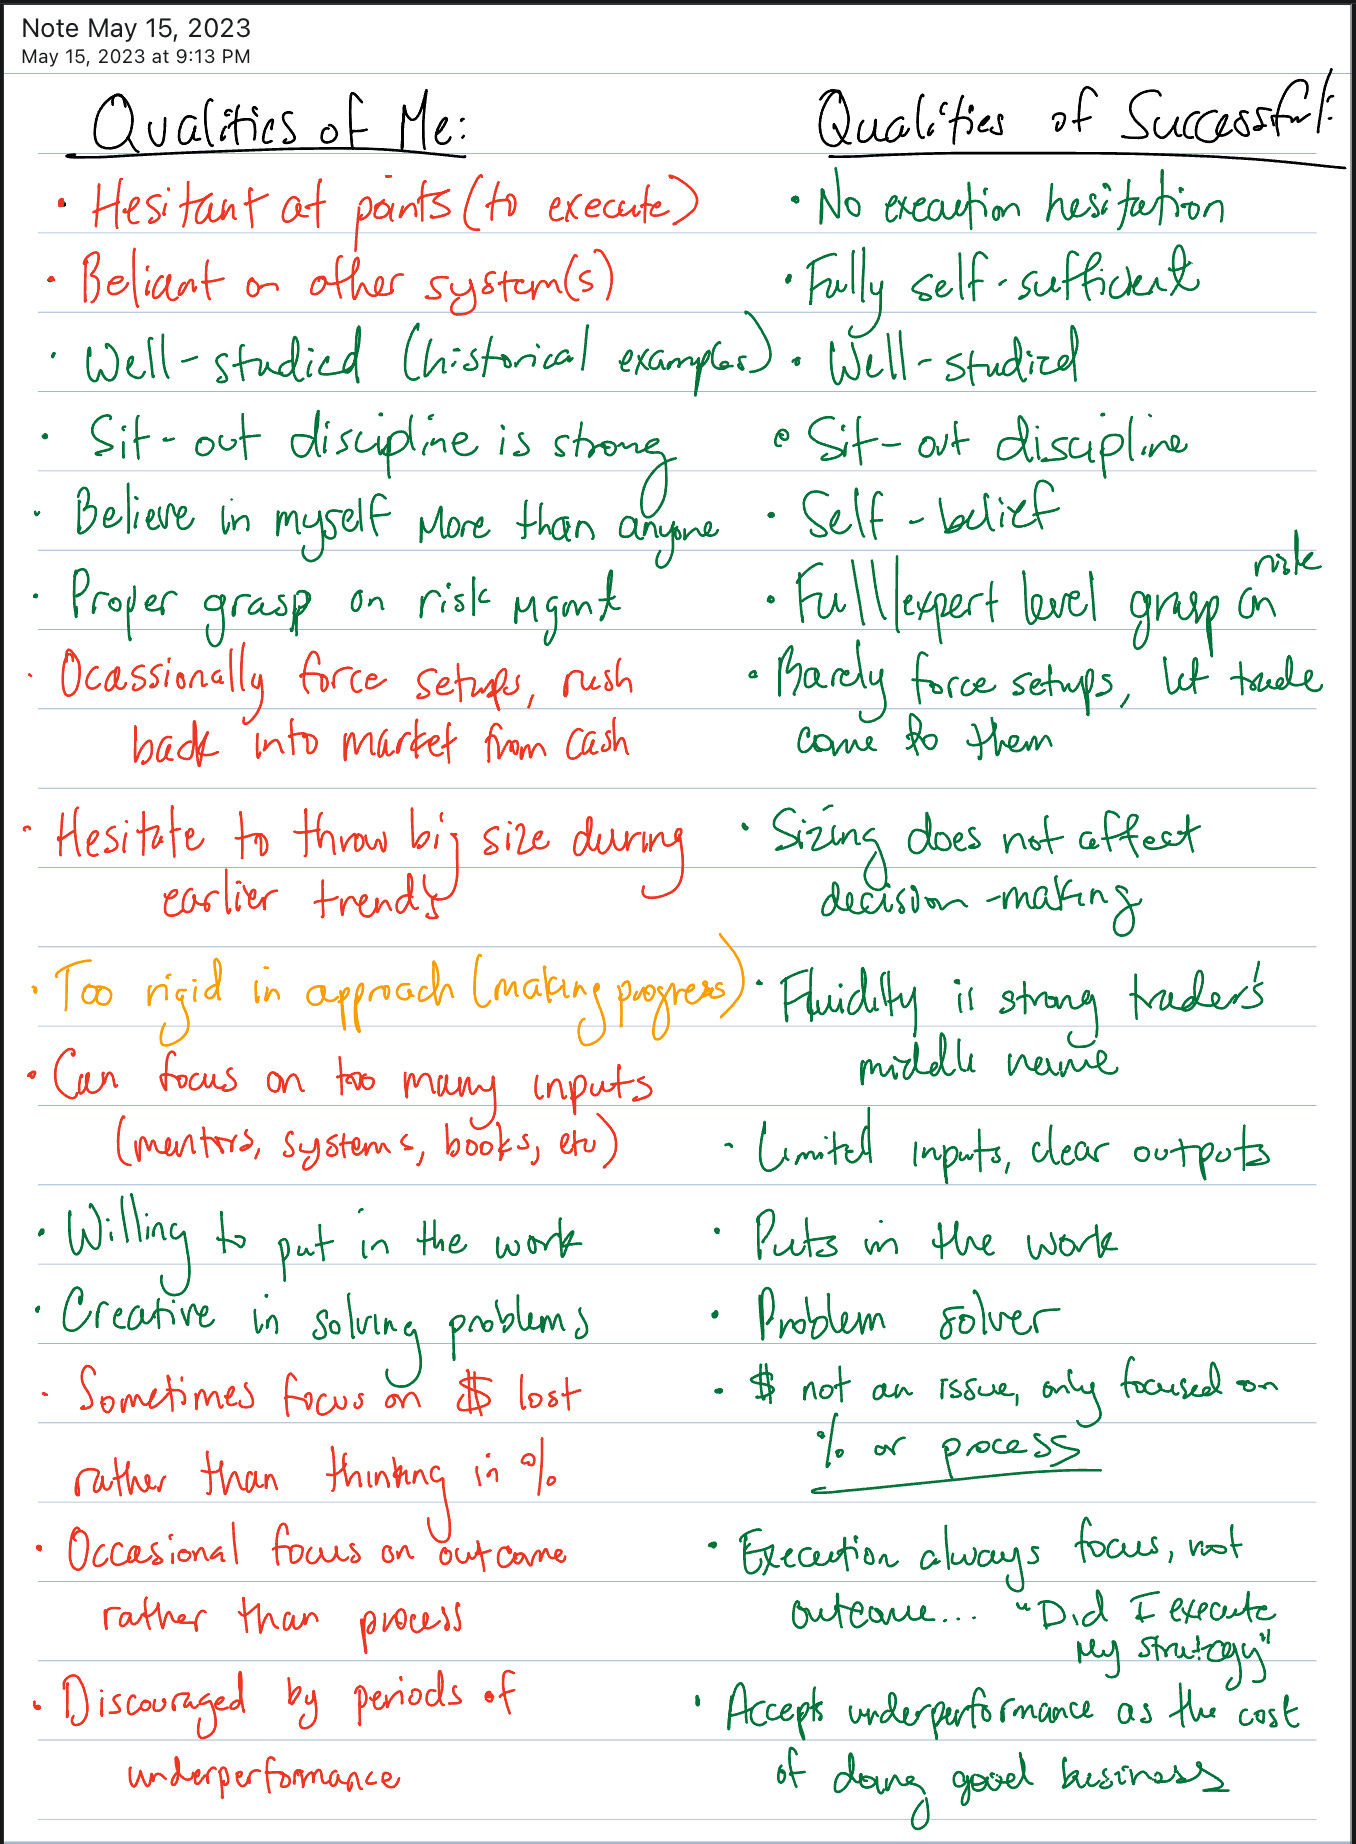 Note May 15, 2023
May 15, 2023 at 9:13 PM
Qualities of Me:
• Hesitant at points (to execute)
• Beliant on other system(s)
• Well-studied (historical examples)
• Sit-out discipline is strong
• Believe in myself more than anyone
• Proper grasp on risk mgmt
• Ocassionally force setups, rush
back into market from cash
• Hesitate to throw big size during
earlier trends
• Too rigid in approach (making progress)
• Can focus on too many inputs
(mentors, systems, books, etc)
• Willing to put in the work
• Creative in solving problems
• Sometimes focus on $ lost
rather than thinking in %
• Occasional focus on outcome
rather than process
• Discouraged by periods of
underperformance
Qualities of Successful:
• No execution hesitation
• Fully self-sufficient
• Well-studied
• Sit-out discipline
• Self-belief
• Full/expert level grasp on risk
• Barely force setups, let trade
come to them
• Sizing does not affect
decision-making
• Fluidity is strong trader's
middle name
• Limited inputs, clear outputs
• Puts in the work
• Problem solver
• $ not an issue, only focused on
% or process
• Execution always focus, not
outcome... "Did I execute
my strategy"
• Accepts underperformance as the cost
of doing good business